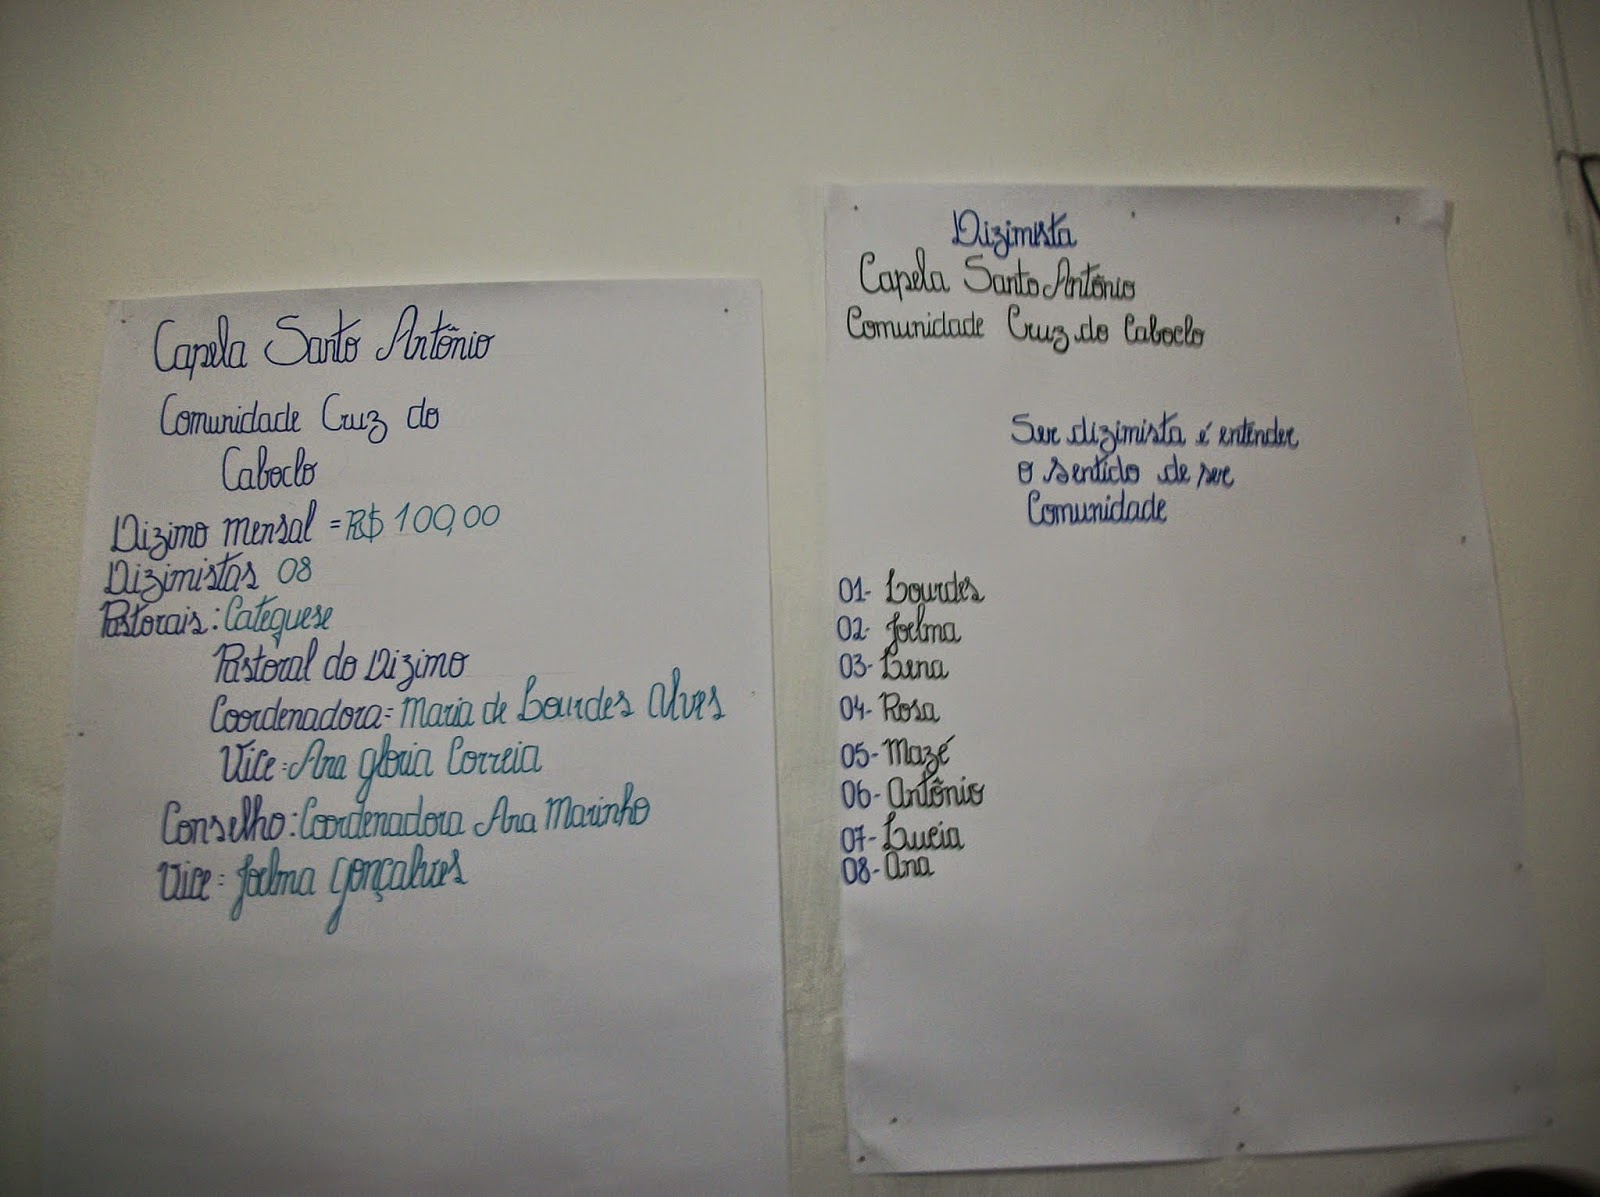 Capela Santo Antônio
Comunidade Cruz do
Caboclo
Dizimo mensal = R$ 100,00
Dizimistas 08
Pastorais: Catequese
Pastoral do Dizimo
Coordenadora= Maria de Lourdes Alves
Vice= Ana gloria Correia
Conselho: Coordenadora Ana Marinho
Vice= Joelma Gonçalves
Dizimista
Capela Santo Antônio
Comunidade Cruz do Caboclo
Ser dizimista é entender
o sentido de ser
Comunidade
01- Lourdes
02- Joelma
03- Lena
04- Rosa
05- Mazé
06- Antônio
07- Lucia
08- Ana